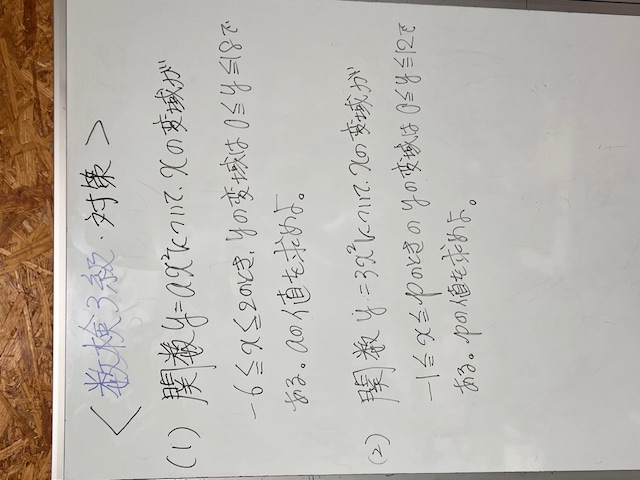 <数検3級・対策>
(1) 関数y=ax²について、xの変域が
-6≦x≦2のとき、yの変域は0≦y≦18で
ある。aの値を求めよ。
(2) 関数y=3x²について、xの変域が
-1≦x≦pのときのyの変域は0≦y≦12で
ある。pの値を求めよ。